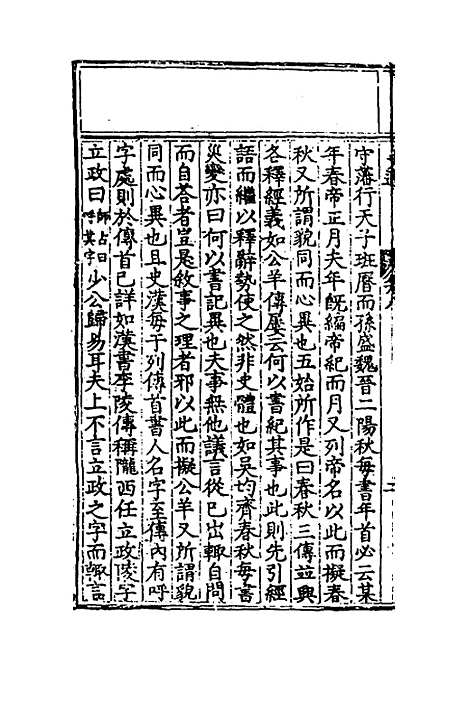 守藩行天子班曆而孫盛魏晉二陽秋每書年首必云某
年春帝正月夫年旣編帝紀而月又列帝名以此而擬春
秋又所謂貌同而心異也五始所作是曰春秋三傳竝興
各釋經義如公羊傳屢云何以書紀其事也此則先引經
語而繼以釋辭勢使之然非史體也如吳均齊春秋每書
災變亦曰何以書記異也夫事無他議言從已出輙自問
而自答者豈是敘事之理者邪以此而擬公羊又所謂貌
同而心異也且史漢每于列傳首書人名字至傳內有呼
字處則於傳首已詳如漢書李陵傳稱隴西任立政陵字
立政曰師占曰呼其字少公歸易耳夫上不言立政之字而輙言